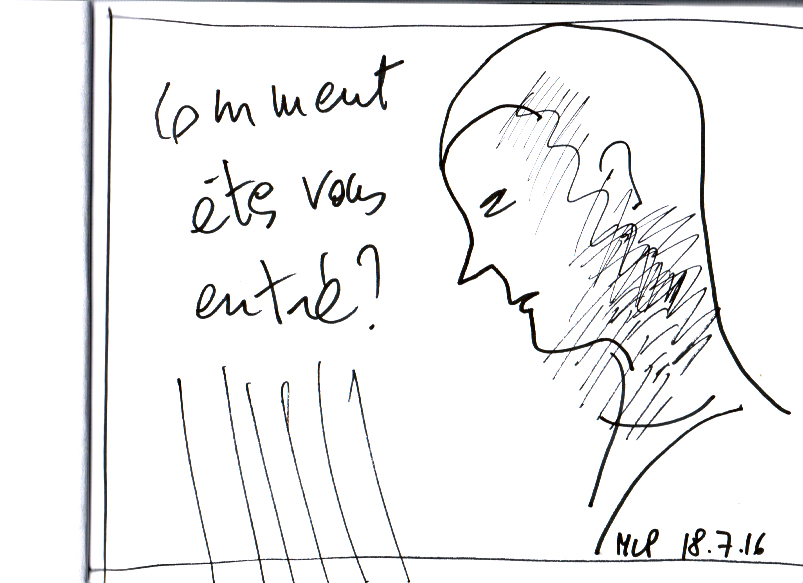 Comment
êtes vous
entré?
MCP 18.7.16